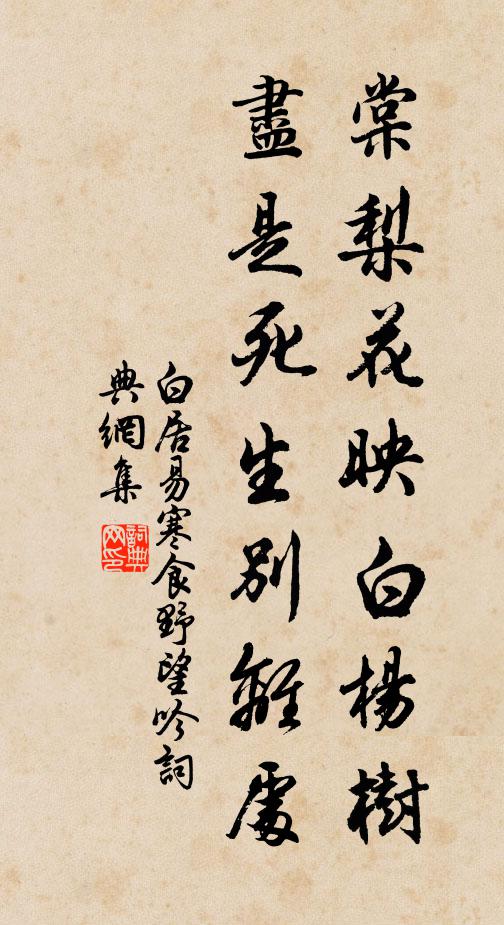 棠梨花映白楊樹
盡是死生別離處
白居易寒食野望吟詞
典網集
詞典網印